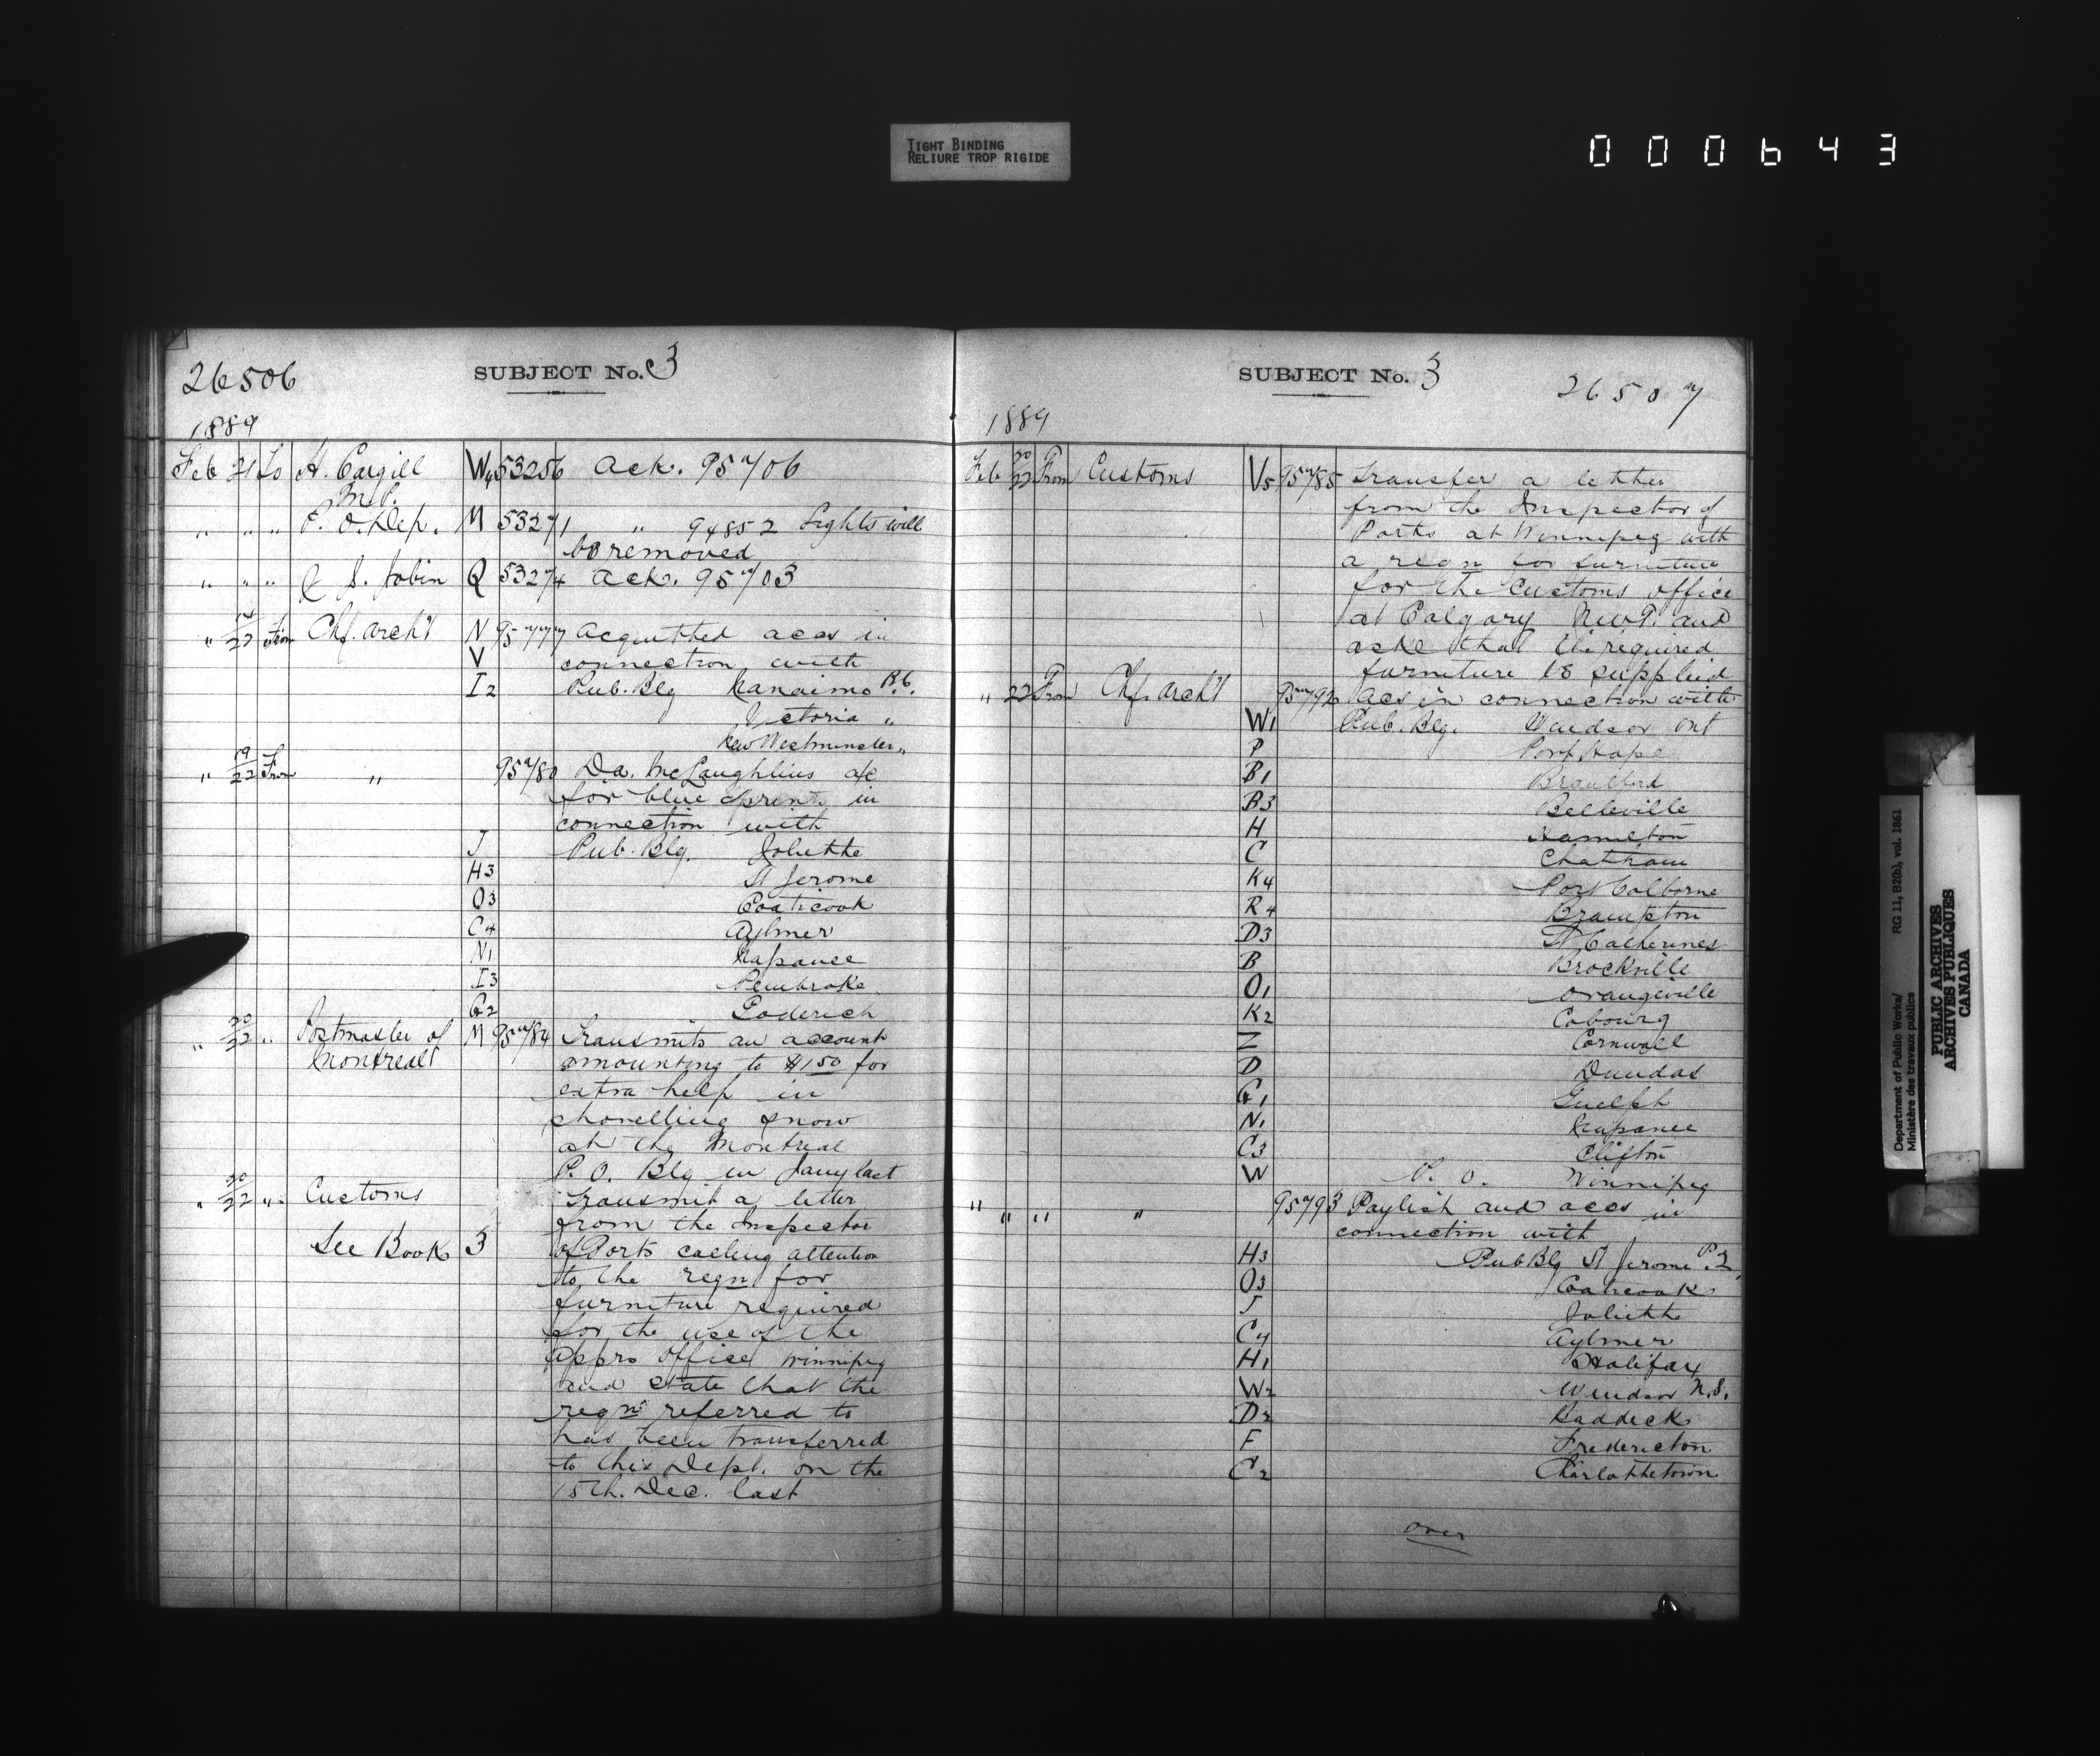 TIGHT BINDING
RELIURE TROP RIGIDE
000643
26506
SUBJECT No. 3
1889
Feb 21 To H. Cargill M.P. W4 53256 Ack. 95706
" " " P. O. Dep. M 53271 " 94852 Lights will
be removed
" " " Q S. Tobin Q 53274 Ack. 95703
" 14/22 From Chf. Arch't N 95777 Acquitted accs in
V connection with
I2 Pub. Blg Nanaimo B.C.
Victoria "
New Westminster "
" 19/22 From " 95780 D.a. McLaughlins a/c
for blue prints in
connection with
J Pub. Blg. Joliette
H3 St Jerome
O3 Coaticook
C4 Aylmer
N1 Napanee
I3 Pembroke
G2 Goderich
" 20/22 " Postmaster of M 95784 Transmits an account
Montreal amounting to $1.50 for
extra help in
shovelling snow
at the Montreal
P. O. Blg in Jany last
" 20/22 " Customs Transmit a letter
from the Inspector
See Book 3 of Ports calling attention
to the reqn for
furniture required
for the use of the
Appro Office Winnipeg
and state that the
reqn referred to
has been transferred
to this Dept. on the
15th. Dec. last
SUBJECT No. 3
26507
1889
Feb 20/22 From Customs V5 95785 Transfer a letter
from the Inspector of
Ports at Winnipeg with
a reqn for furniture
for the Customs office
at Calgary N.W.T. and
aske that the required
furniture be supplied
" 22 From Chf. Arch't 95792 Accs in connection with
W1 Pub. Blg. Windsor Ont
P Port Hope
B1 Brantford
B3 Belleville
H Hamilton
C Chatham
K4 Port Colborne
R4 Brampton
D3 St Catherines
B Brockville
O1 Orangeville
K2 Cobourg
Z Cornwall
D Dundas
G1 Guelph
N1 Napanee
C3 Clifton
W P. O. Winnipeg
" " " " 95793 Paylist and accs in
connection with
H3 Pub Blg St Jerome P.Q.
O3 Coaticook
J Joliette
C4 Aylmer
H1 Halifax
W2 Windsor N.S.
D2 Baddeck
F Fredericton
C2 Charlottetown
over
Department of Public Works/ RG 11, B2(b), vol. 1861
Ministère des travaux publics
PUBLIC ARCHIVES
ARCHIVES PUBLIQUES
CANADA